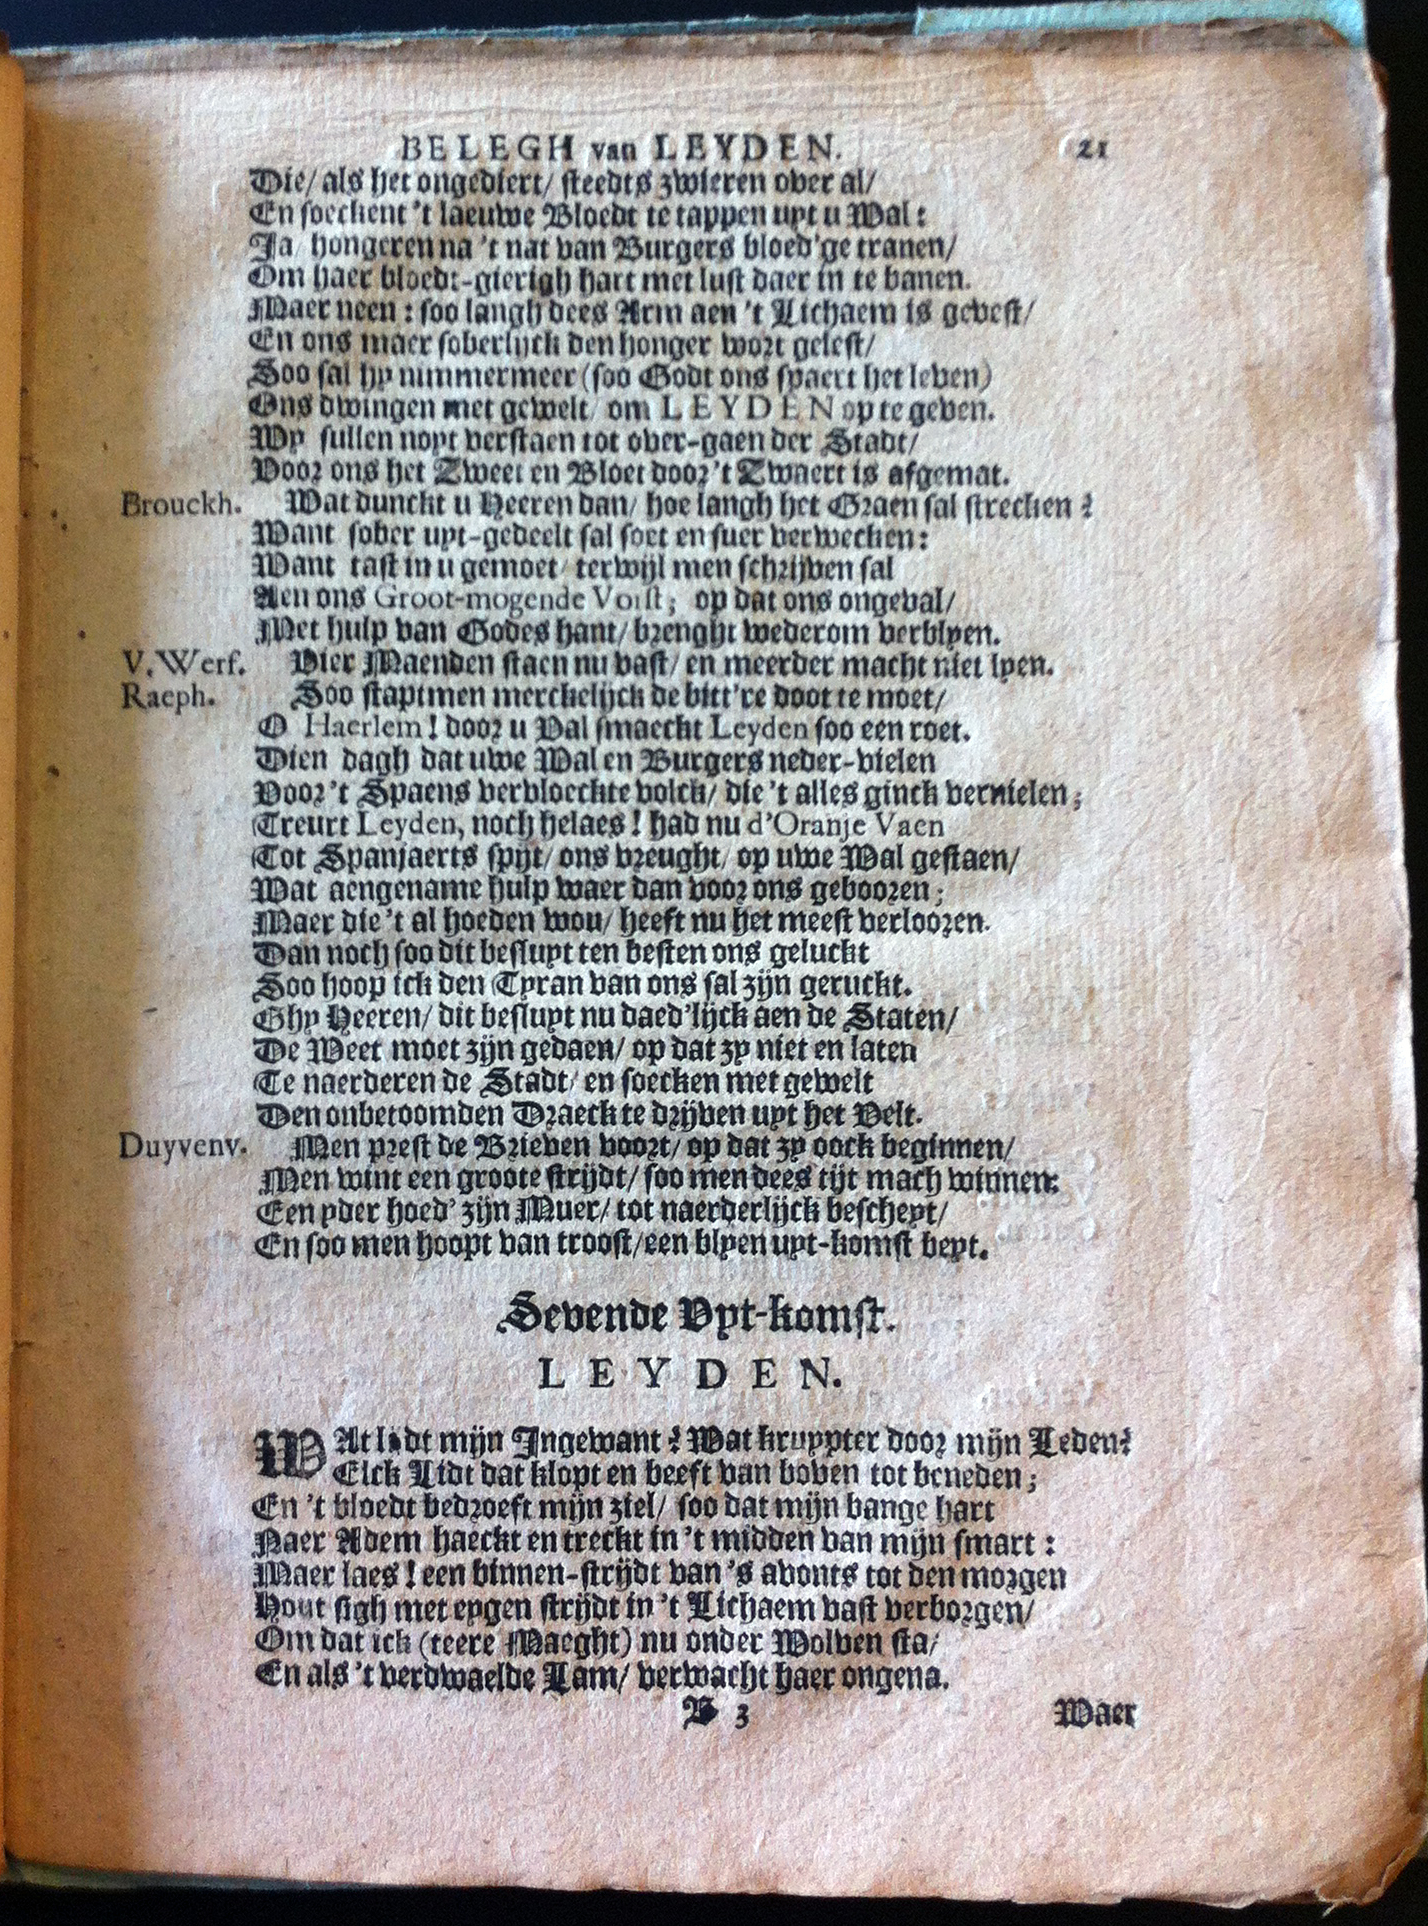 BELEGH van LEYDEN. 21
Die/ als het ongediert/ steedts zwieren over al/
En soeckent 't laeuwe Bloedt te tappen uyt u Wal:
Ja/ hongeren na 't nat van Burgers bloed'ge tranen/
Om haer bloedt-gierigh hart met lust daer in te banen.
Maer neen: soo langh dees Arm aen 't Lichaem is gevest/
En ons maer soberlijck den honger wort gelest/
Soo sal hy nimmermeer (soo Godt ons spaert het leven)
Ons dwingen met gewelt/ om LEYDEN op te geven.
Wy sullen noyt verstaen tot over-gaen der Stadt/
Voor ons het Zweet en Bloet door 't Zwaert is afgemat.
Brouckh. Wat dunckt u Heeren dan/ hoe langh het Graen sal strecken?
Want sober uyt-gedeelt sal soet en suer verwecken:
Want tast in u gemoet/ terwijl men schrijven sal
Aen ons Groot-mogende Vorst; op dat ons ongeval/
Met hulp van Godes hant/ brenght wederom verblyen.
V. Werf. Vier Maenden staen nu vast/ en meerder macht niet lyen.
Raeph. Soo staptmen merckelijck de bitt're doot te moet/
O Haerlem! door u Val smaeckt Leyden soo een roet.
Dien dagh dat uwe Wal en Burgers neder-vielen
Voor 't Spaens vervloeckte volck/ die 't alles ginck vernielen;
Treurt Leyden, noch helaes! had nu d'Oranje Vaen
Tot Spanjaerts spijt/ ons vreught/ op uwe Wal gestaen/
Wat aengename hulp waer dan voor ons gebooren;
Maer die 't al hoeden wou/ heeft nu het meest verlooren.
Dan noch soo dit besluyt ten besten ons geluckt
Soo hoop ick den Tyran van ons sal zijn geruckt.
Ghy Heeren/ dit besluyt nu daed'lijck aen de Staten/
De Weet moet zijn gedaen/ op dat zy niet en laten
Te naerderen de Stadt/ en soecken met gewelt
Den onbetoomden Draeck te drijven uyt het Velt.
Duyvenv. Men prest de Brieven voort/ op dat zy oock beginnen/
Men wint een groote strijdt/ soo men dees tijt mach winnen:
Een yder hoed' zijn Muer/ tot naerderlijck bescheyt/
En soo men hoopt van troost/ een blyen uyt-komst beyt.
Sevende Vyt-komst.
LEYDEN.
WAt lijdt mijn Ingewant? Wat kruypter door mijn Leden?
Elck Lidt dat klopt en beeft van boven tot beneden;
En 't bloedt bedroeft mijn ziel/ soo dat mijn bange hart
Naer Adem haeckt en treckt in 't midden van mijn smart:
Maer laes! een binnen-strijdt van 's avonts tot den morgen
Hout sigh met eygen strijdt in 't Lichaem vast verborgen/
Om dat ick (teere Maeght) nu onder Wolven sta/
En als 't verdwaelde Lam/ verwacht haer ongena.
B 3 Waer